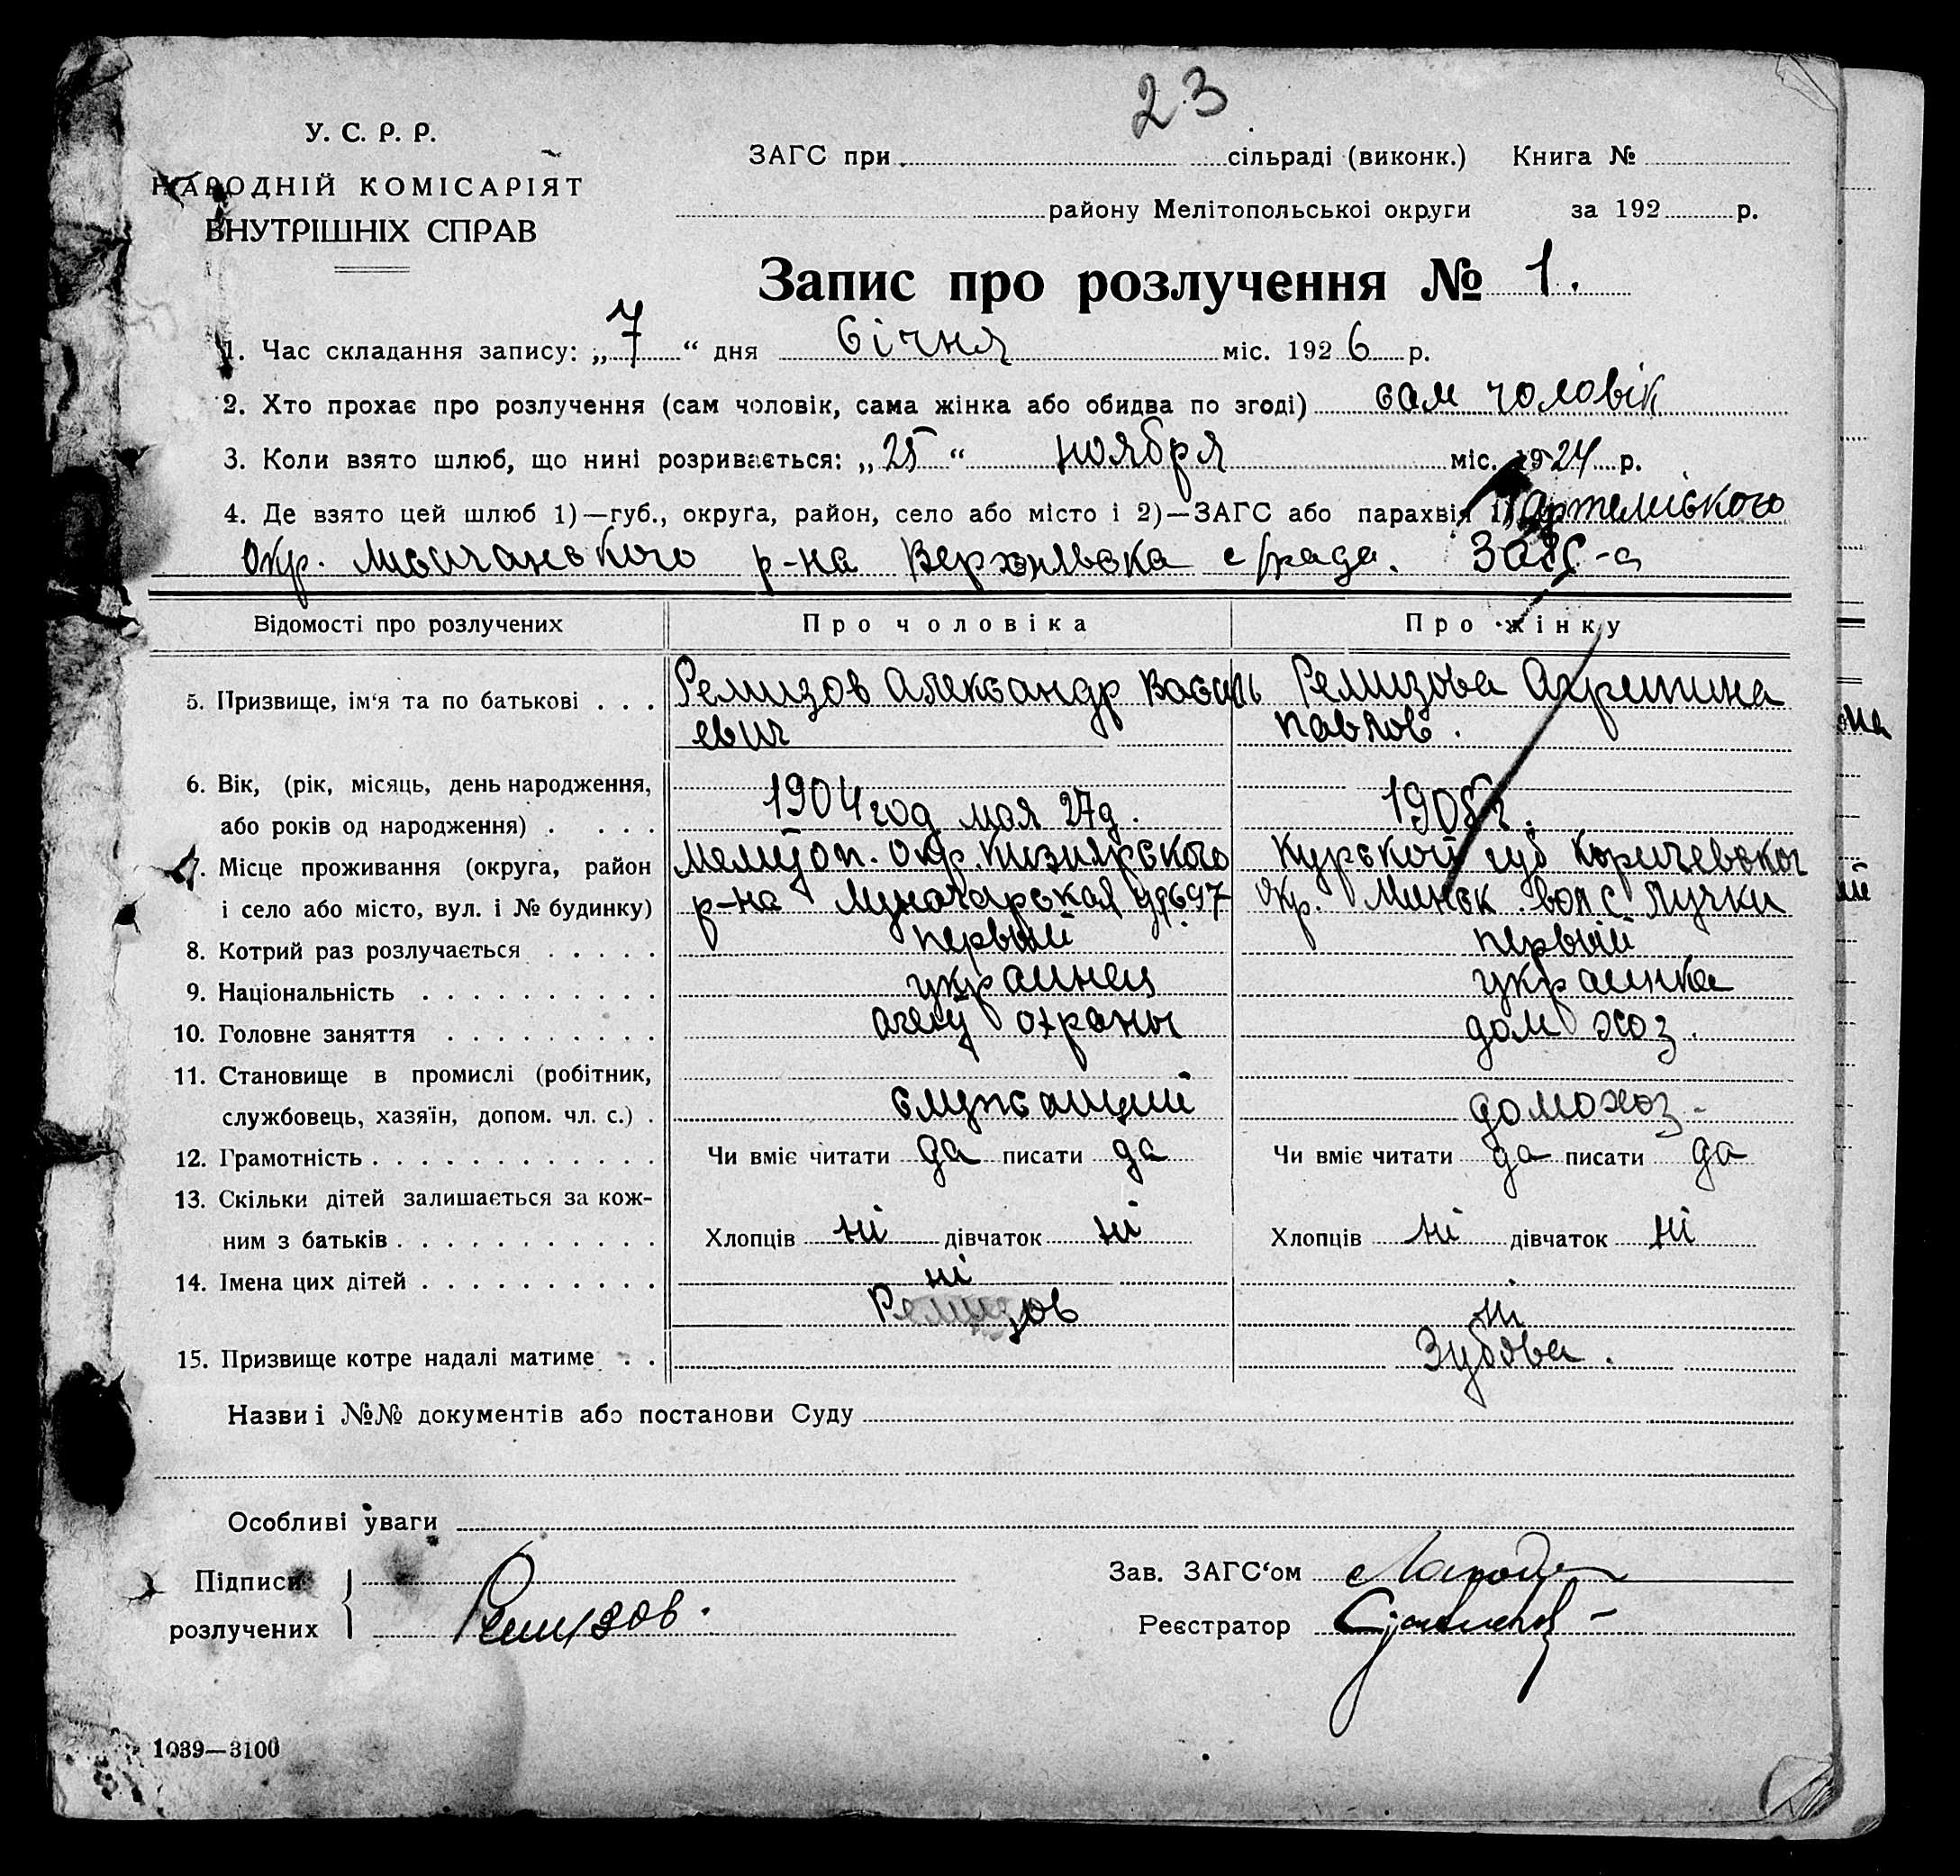 23
У. С. Р. Р.
НАРОДНІЙ КОМІСАРІЯТ
ВНУТРІШНІХ СПРАВ
ЗАГС при сільраді (виконк.) Книга №
району Мелітопольської округи за 192 р.
Запис про розлучення № 1.
1. Час складання запису: „7“ дня Січня міс. 1926 р.
2. Хто прохає про розлучення (сам чоловік, сама жінка або обидва по згоді) сам чоловік
3. Коли взято шлюб, що нині розривається: „25“ ноября міс. 1924 р.
4. Де взято цей шлюб 1)—губ., округа, район, село або місто і 2)—ЗАГС або парахвія 1) Артемівського
Окр. Лисичанського р-на с/рада. ЗАГС-а
Відомості про розлучених Про чоловіка Про жінку
5. Призвище, ім'я та по батькові . . . Ремизов Александр Василь Ремизова Акрипина
евич Павлов.
6. Вік, (рік, місяць, день народження,
або років од народження) . . . . 1904 год мая 27д. 1908 г.
7. Місце проживання (округа, район Мелитоп. Окр. Кизиярского Курской губ
і село або місто, вул. і № будинку) р-на Луначарская 97 Окр. Минск. вол с. Лучки
8. Котрий раз розлучається . . . . . первый первый
9. Національність . . . . . . . . . . украинец украинка
10. Головне заняття . . . . . . . . . агент охраны дом хоз.
11. Становище в промислі (робітник,
службовець, хазяїн, допом. чл. с.) . служащий домохоз.
12. Грамотність . . . . . . . . . . . . Чи вміє читати да писати да Чи вміє читати да писати да
13. Скільки дітей залишається за кож-
ним з батьків . . . . . . . . . . . Хлопців ні дівчаток ні Хлопців ні дівчаток ні
14. Імена цих дітей . . . . . . . . . . ні
Ремизов ні
15. Призвище котре надалі матиме . . Зубова.
Назви і №№ документів або постанови Суду
Особливі уваги
Підписи Зав. ЗАГС'ом
розлучених Ремизов. Реєстратор
1039—3100